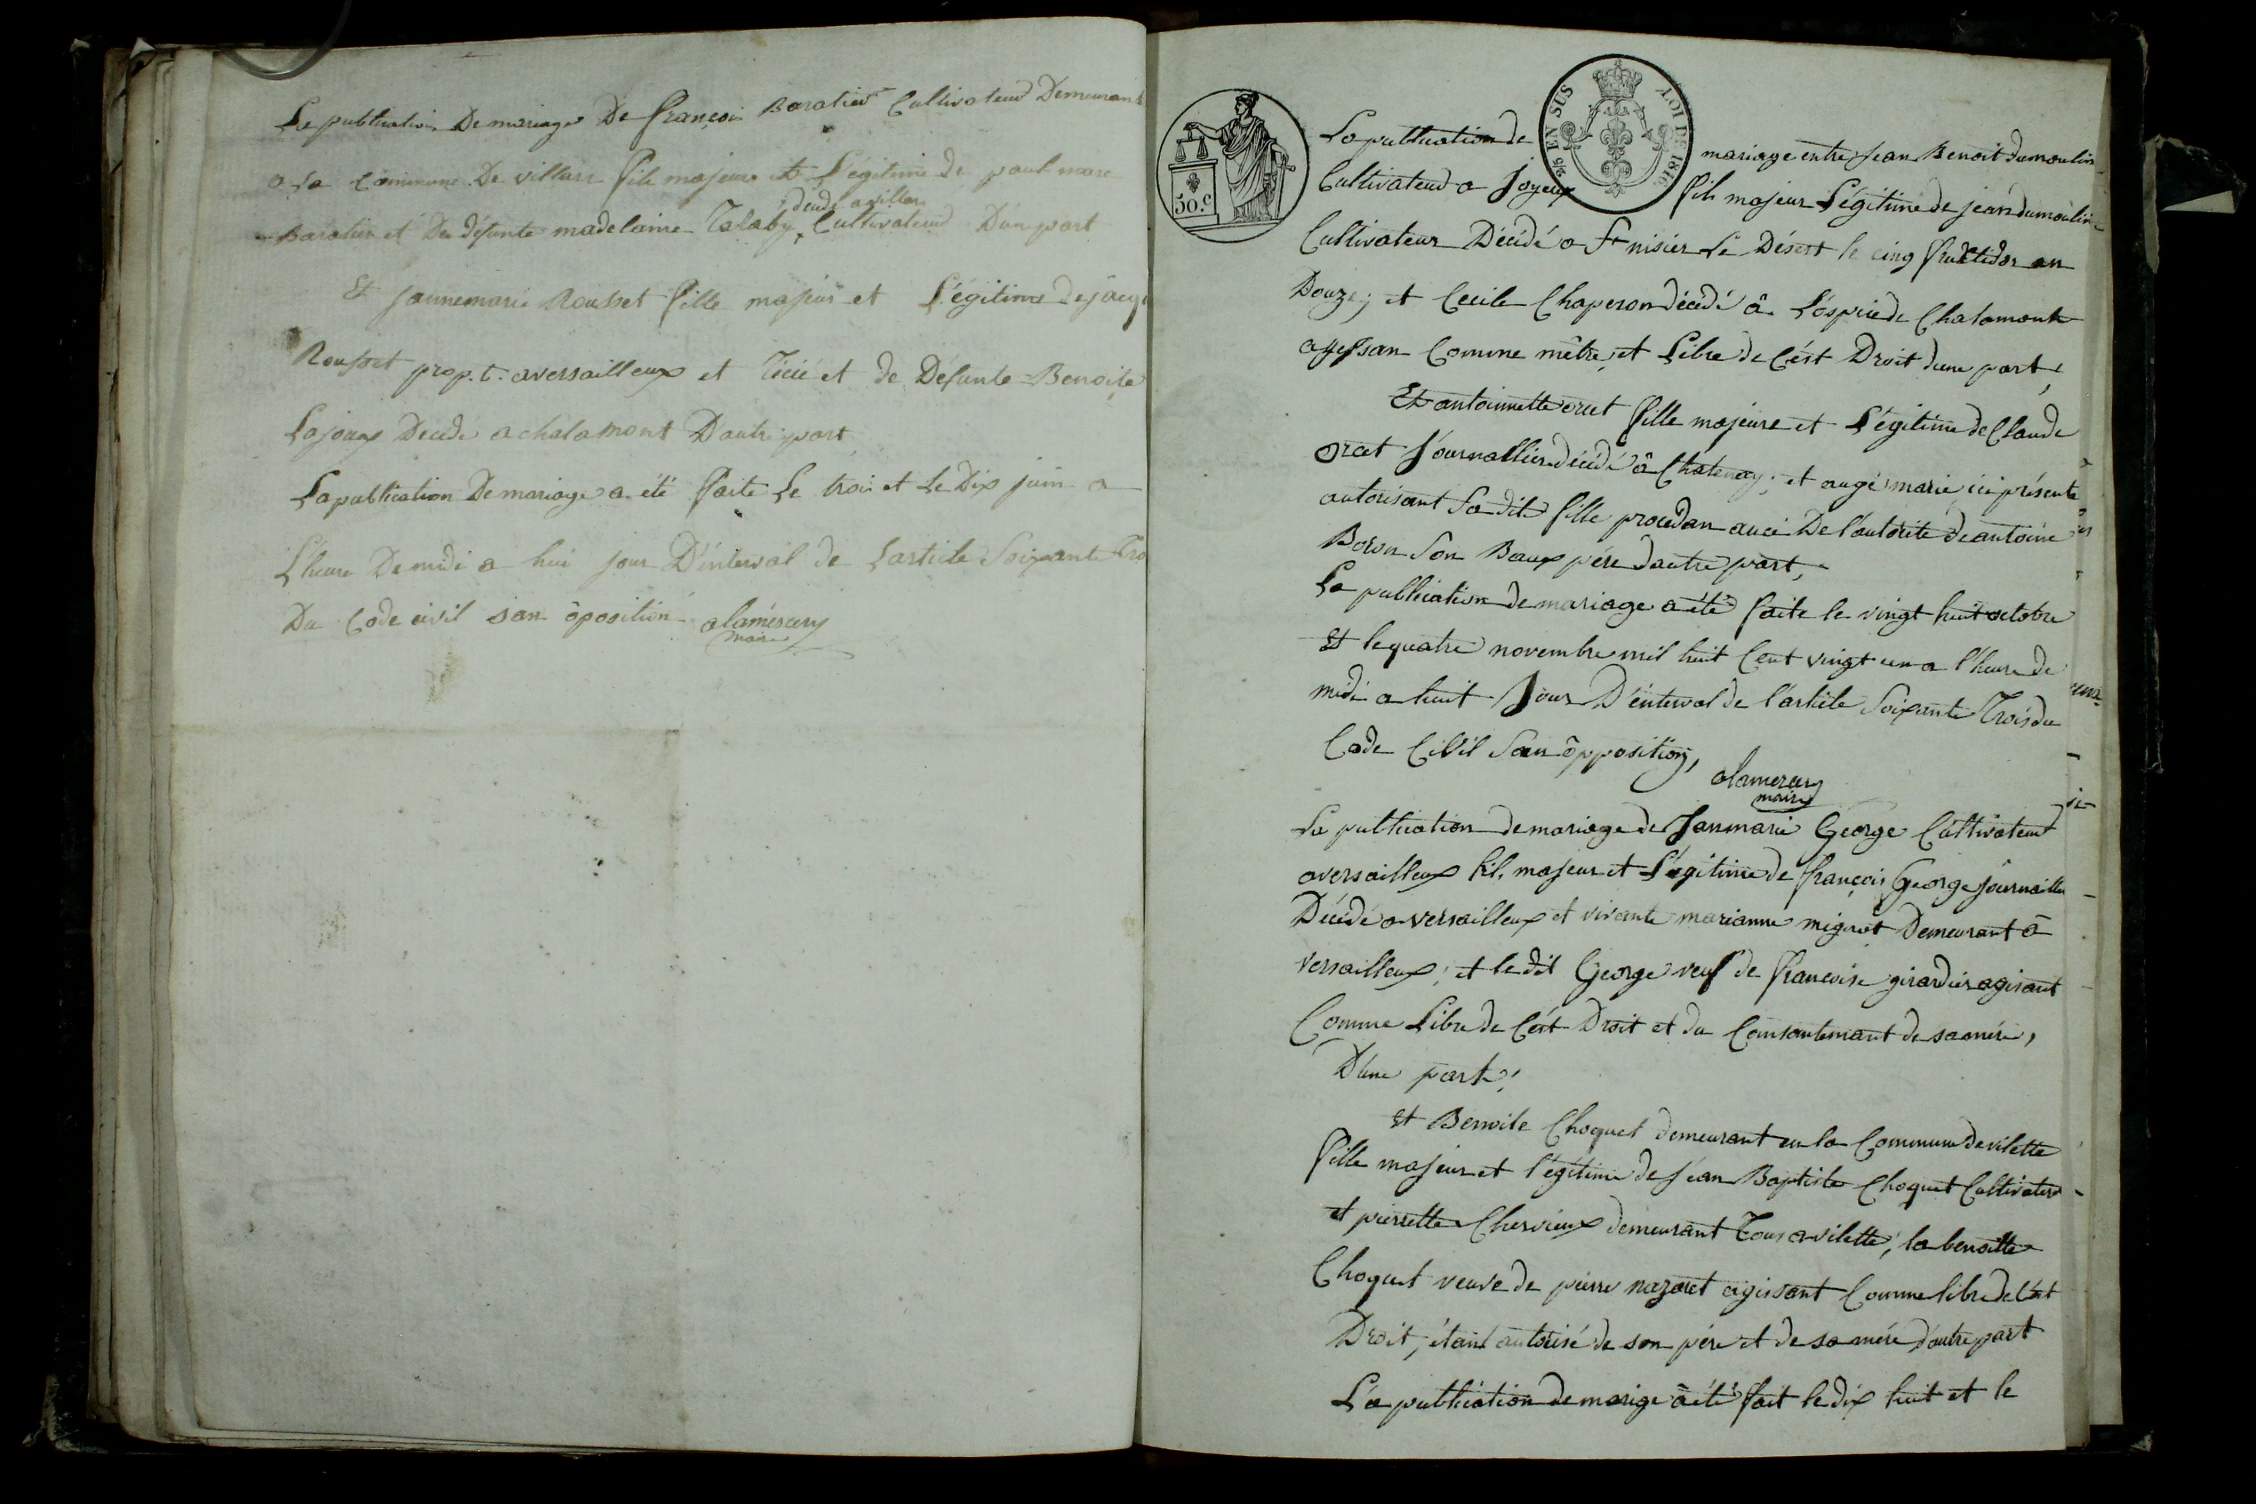 La publication De mariage De françois Baratier Cultivateur Demeurant
a La Commune De villars fils majeur et Légitime de paul marc
decede a villars
Baratier et De défunte madelaine Talaby, Cultivateur D'une part
Et jannemarie Rousset fille majeur et Légitime de jacq
Rousset prop.t. a versailleux et et de Défunte Benoite
Lajoux Décédé a chalamont D'autre part
La publication De mariage a été faite Le trois et Le Dix juin a
L'heure De midi a hui jour D'interval de Larticle Soixante Tro
Du Code civil san ôposition alamércery
maire
50.c
25 EN SUS
LOI DE 1816
La publication de mariage entre jean Benoit dumoulin
Cultivateur a Joyeux fils majeur Légitime de jean dumoulin
Cultivateur Décédé a St nisier Le Désert le cinq fructidor an
Douze; et Cecile Chaperon décédé â L'ospice de Chalamont
agessan Comme mêtre et Libre de C'ést Droit dune part,
Et antoinette orcet fille majeure et Légitime de Claude
orcet Journallier décédé â Chatenay; et augé marie ici présente
autorisant Sa dite fille procedan auci De l'autorité de antoine
Boron Son Beaux pére d'autre part,
La publication de mariage a été faite le vingt huit octobre
Et le quatre novembre mil huit Cent vingt un a l'heure de
midi a huit Jour D'interval de l'article Soixante Trois du
Code Civil San ôpposition,
alamercery
maire
La publication de mariage de Janmarie George Cultivateur
a versailleux fil. majeur et Légitime de françois George journallier
Décédé a versailleux et vivante marianne mignot Demeurant â
versailleux; et le dit George veuf de francoise girardier agisant
Comme Libre de C'ést Droit et du Consantemant de sa mére,
D'une part;
Et Benoite Choquet demeurant en la Commune de vilette
fille majeur et l'égitime de jéan Baptiste Choquet Cultivateur
et pierrette Chervieux demeurant Tous a vilette; la benoitte
Choquet veuve de pierre nazaret agissant Comme libre de C'ést
Droit, étant autorisé de son pére et de sa mére d'autre part
La publication de marige a été fait le dix huit et le